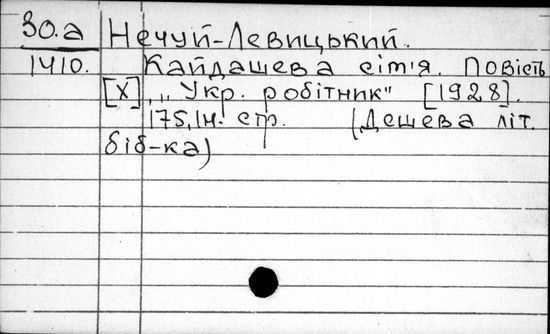 30.а Нечуй-Левицький.
1410. Кайдашева сім'я. Повість
[Х], „Укр. робітник" [1928].
175,1н. стр. (Дешева літ.
біб-ка)